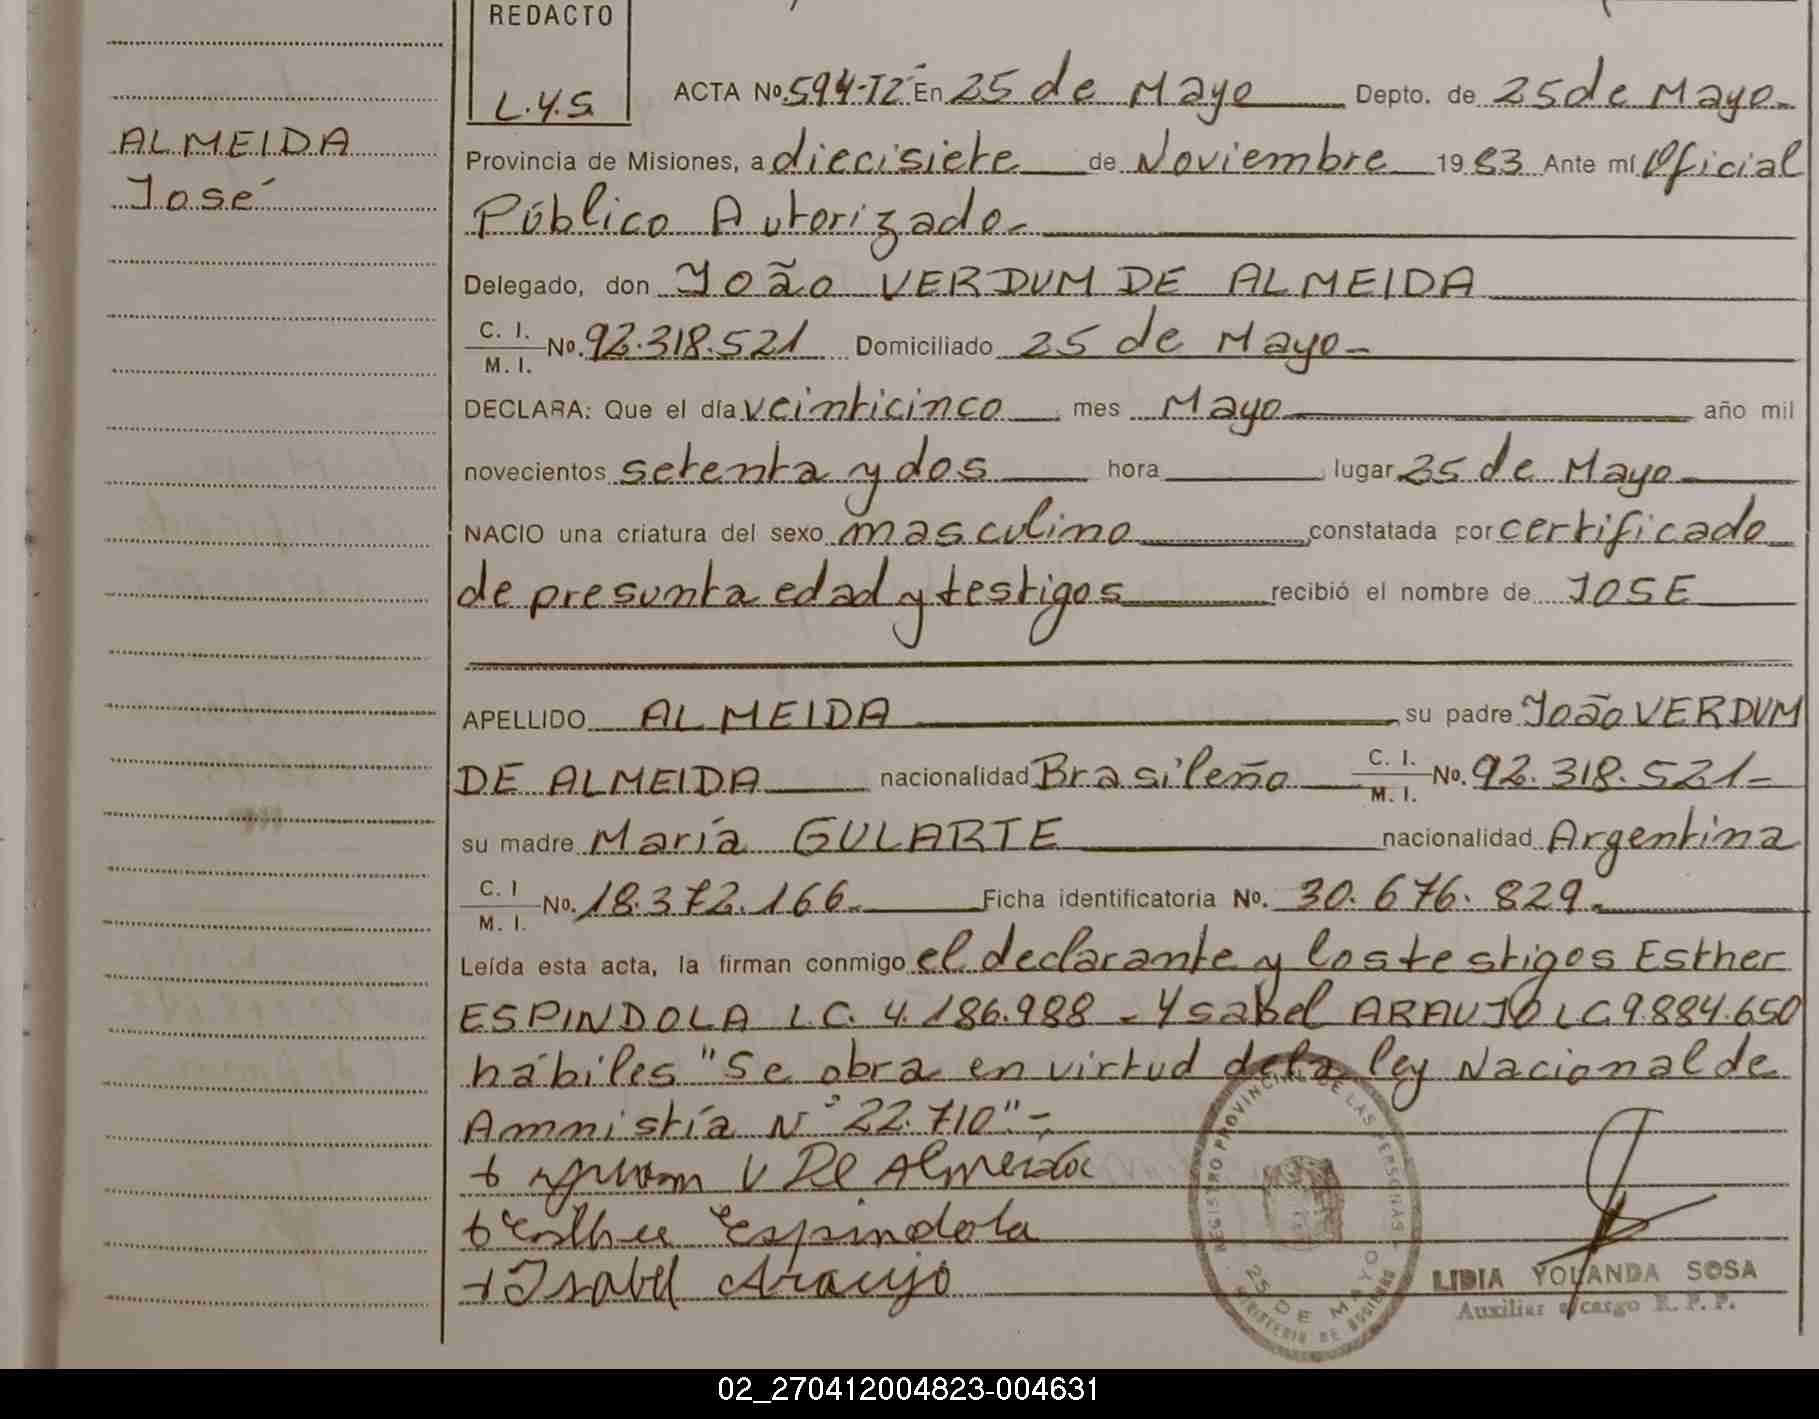 REDACTO
L.Y.S.
ALMEIDA
José
ACTA No. 594-T2- En 25 de Mayo Depto. de 25 de Mayo-
Provincia de Misiones, a diecisiete de Noviembre 1983 Ante mí Oficial
Público Autorizado-
Delegado, don João VERDUM DE ALMEIDA
C. I. M. I. No. 92.318.521 Domiciliado 25 de Mayo-
DECLARA: Que el día veinticinco mes Mayo año mil
novecientos setenta y dos hora lugar 25 de Mayo
NACIO una criatura del sexo masculino constatada por certificado
de presunta edad y testigos recibió el nombre de JOSE
APELLIDO ALMEIDA su padre João VERDUM
DE ALMEIDA nacionalidad Brasileño C. I. M. I. No. 92.318.521-
su madre María GULARTE nacionalidad Argentina
C. I M. I. No. 18.372.166- Ficha identificatoria No. 30.676.829-
Leída esta acta, la firman conmigo el declarante y los testigos Esther
ESPINDOLA L.C. 4.186.988 - Ysabel ARAUJO LC 9.884.650
hábiles "Se obra en virtud de la ley Nacional de
Amnistía N° 22.710"-;
V De Almeida
Esther Espindola
Isabel Araujo
REGISTRO PROVINCIAL DE LAS PERSONAS
25 DE MAYO
MINISTERIO DE GOBIERNO
LIDIA YOLANDA SOSA
Auxiliar a/cargo R. P. P.
02_270412004823-004631